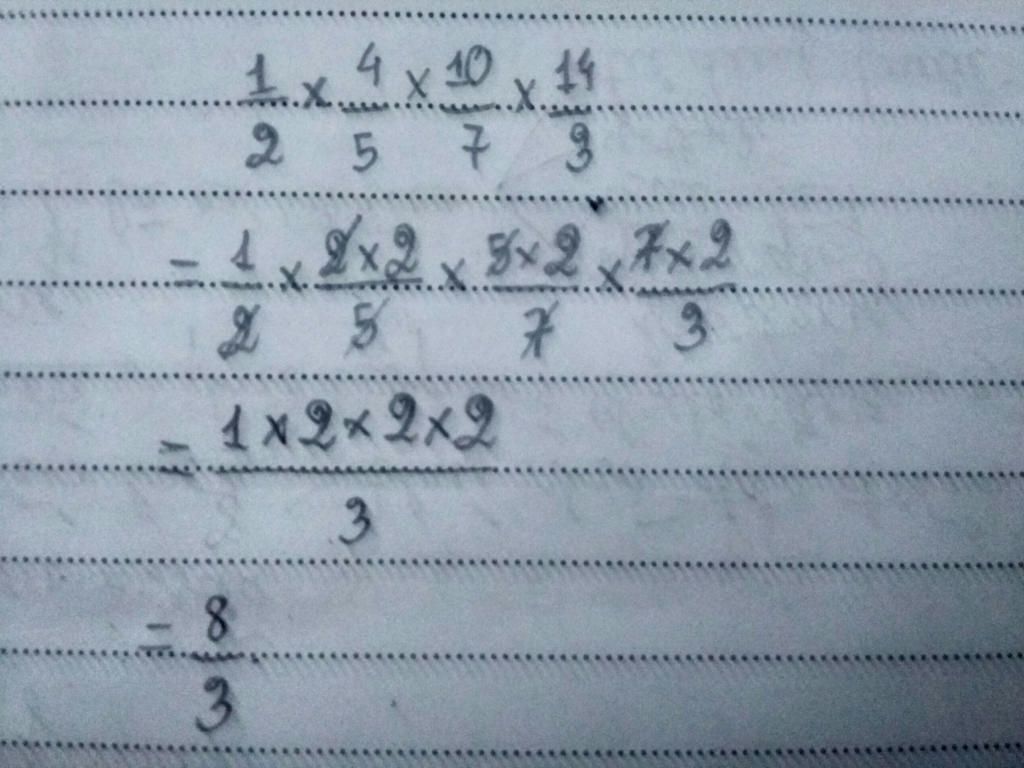 1/2 × 4/5 × 10/7 × 14/3
= 1/2 × 2×2/5 × 5×2/7 × 7×2/3
= 1×2×2×2/3
= 8/3